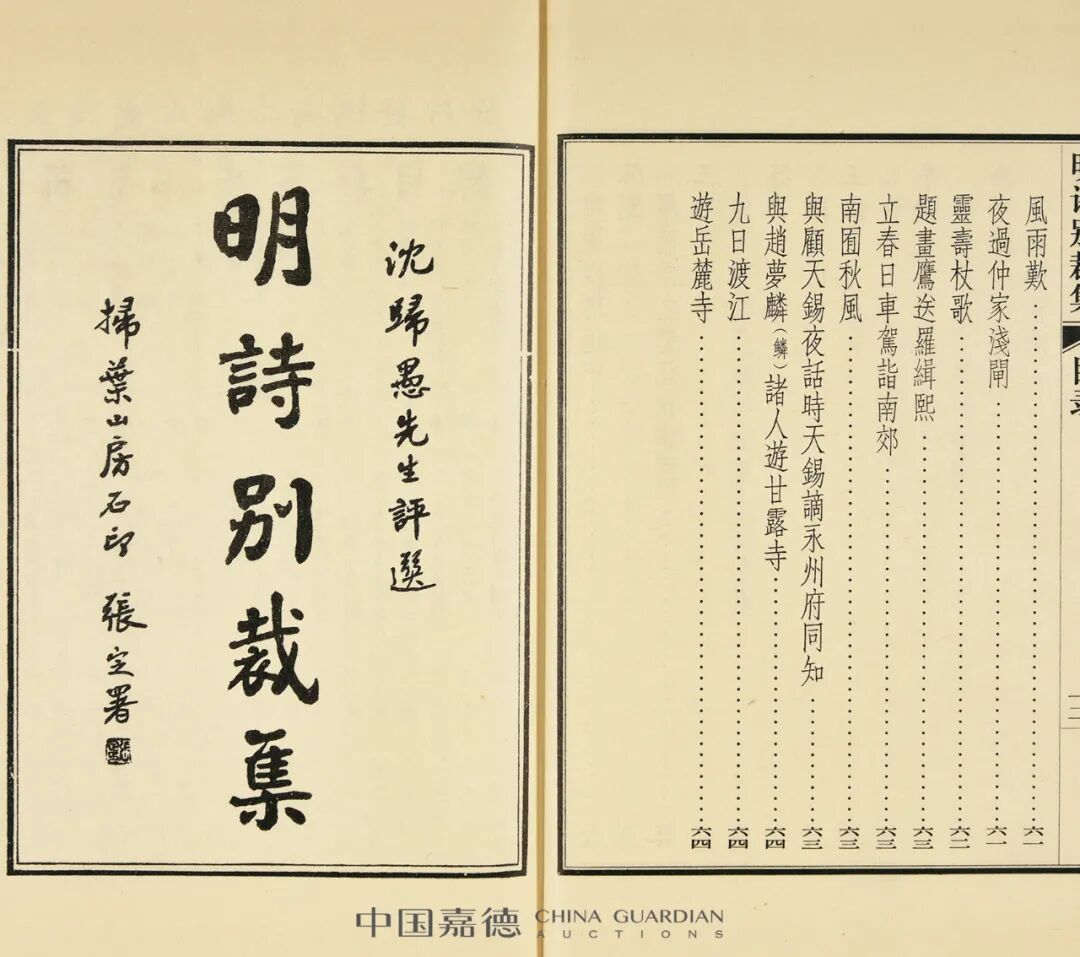 風雨歎……六一
夜過仲家淺閘……六一
靈壽杖歌……六二
題畫鷹送羅緝熙……六三
立春日車駕詣南郊……六三
南囿秋風……六三
與顧天錫夜話時天錫謫永州府同知……六三
與趙夢麟(鱗)諸人遊甘露寺……六四
九日渡江……六四
遊岳麓寺……六四
沈歸愚先生評選
明詩別裁集
掃葉山房石印 張定署
中国嘉德 CHINA GUARDIAN
AUCTIONS